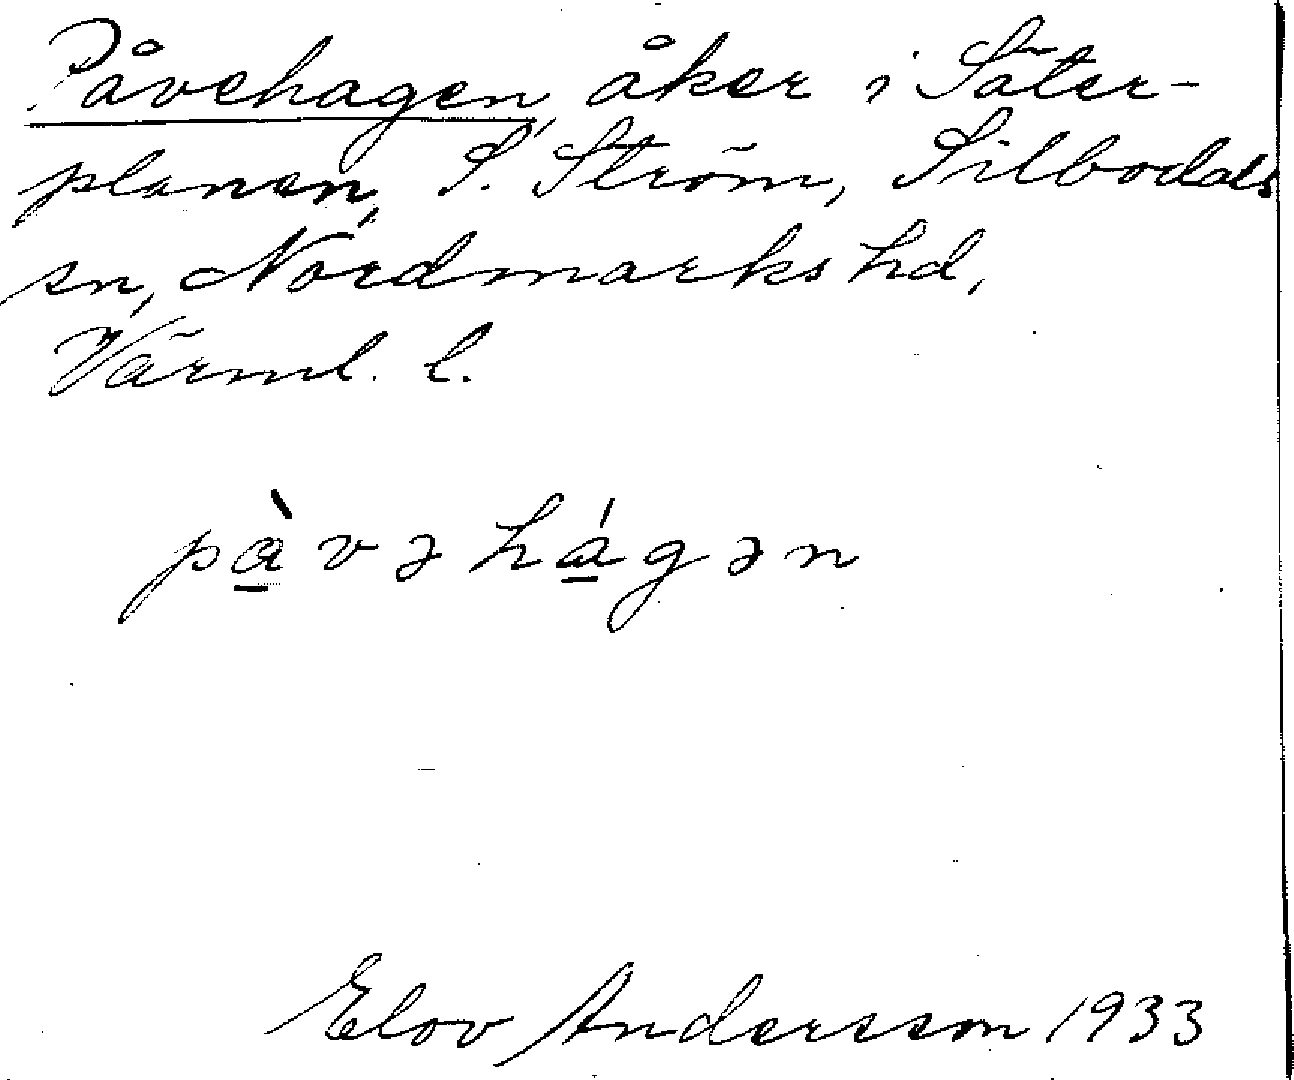 Påvehagen, åker i Säter-
planen, S. Ström, Silbodals
sn, Nordmarks hd,
Värml. l.
pà̱vəhá̱gən
Elov Andersson 1933